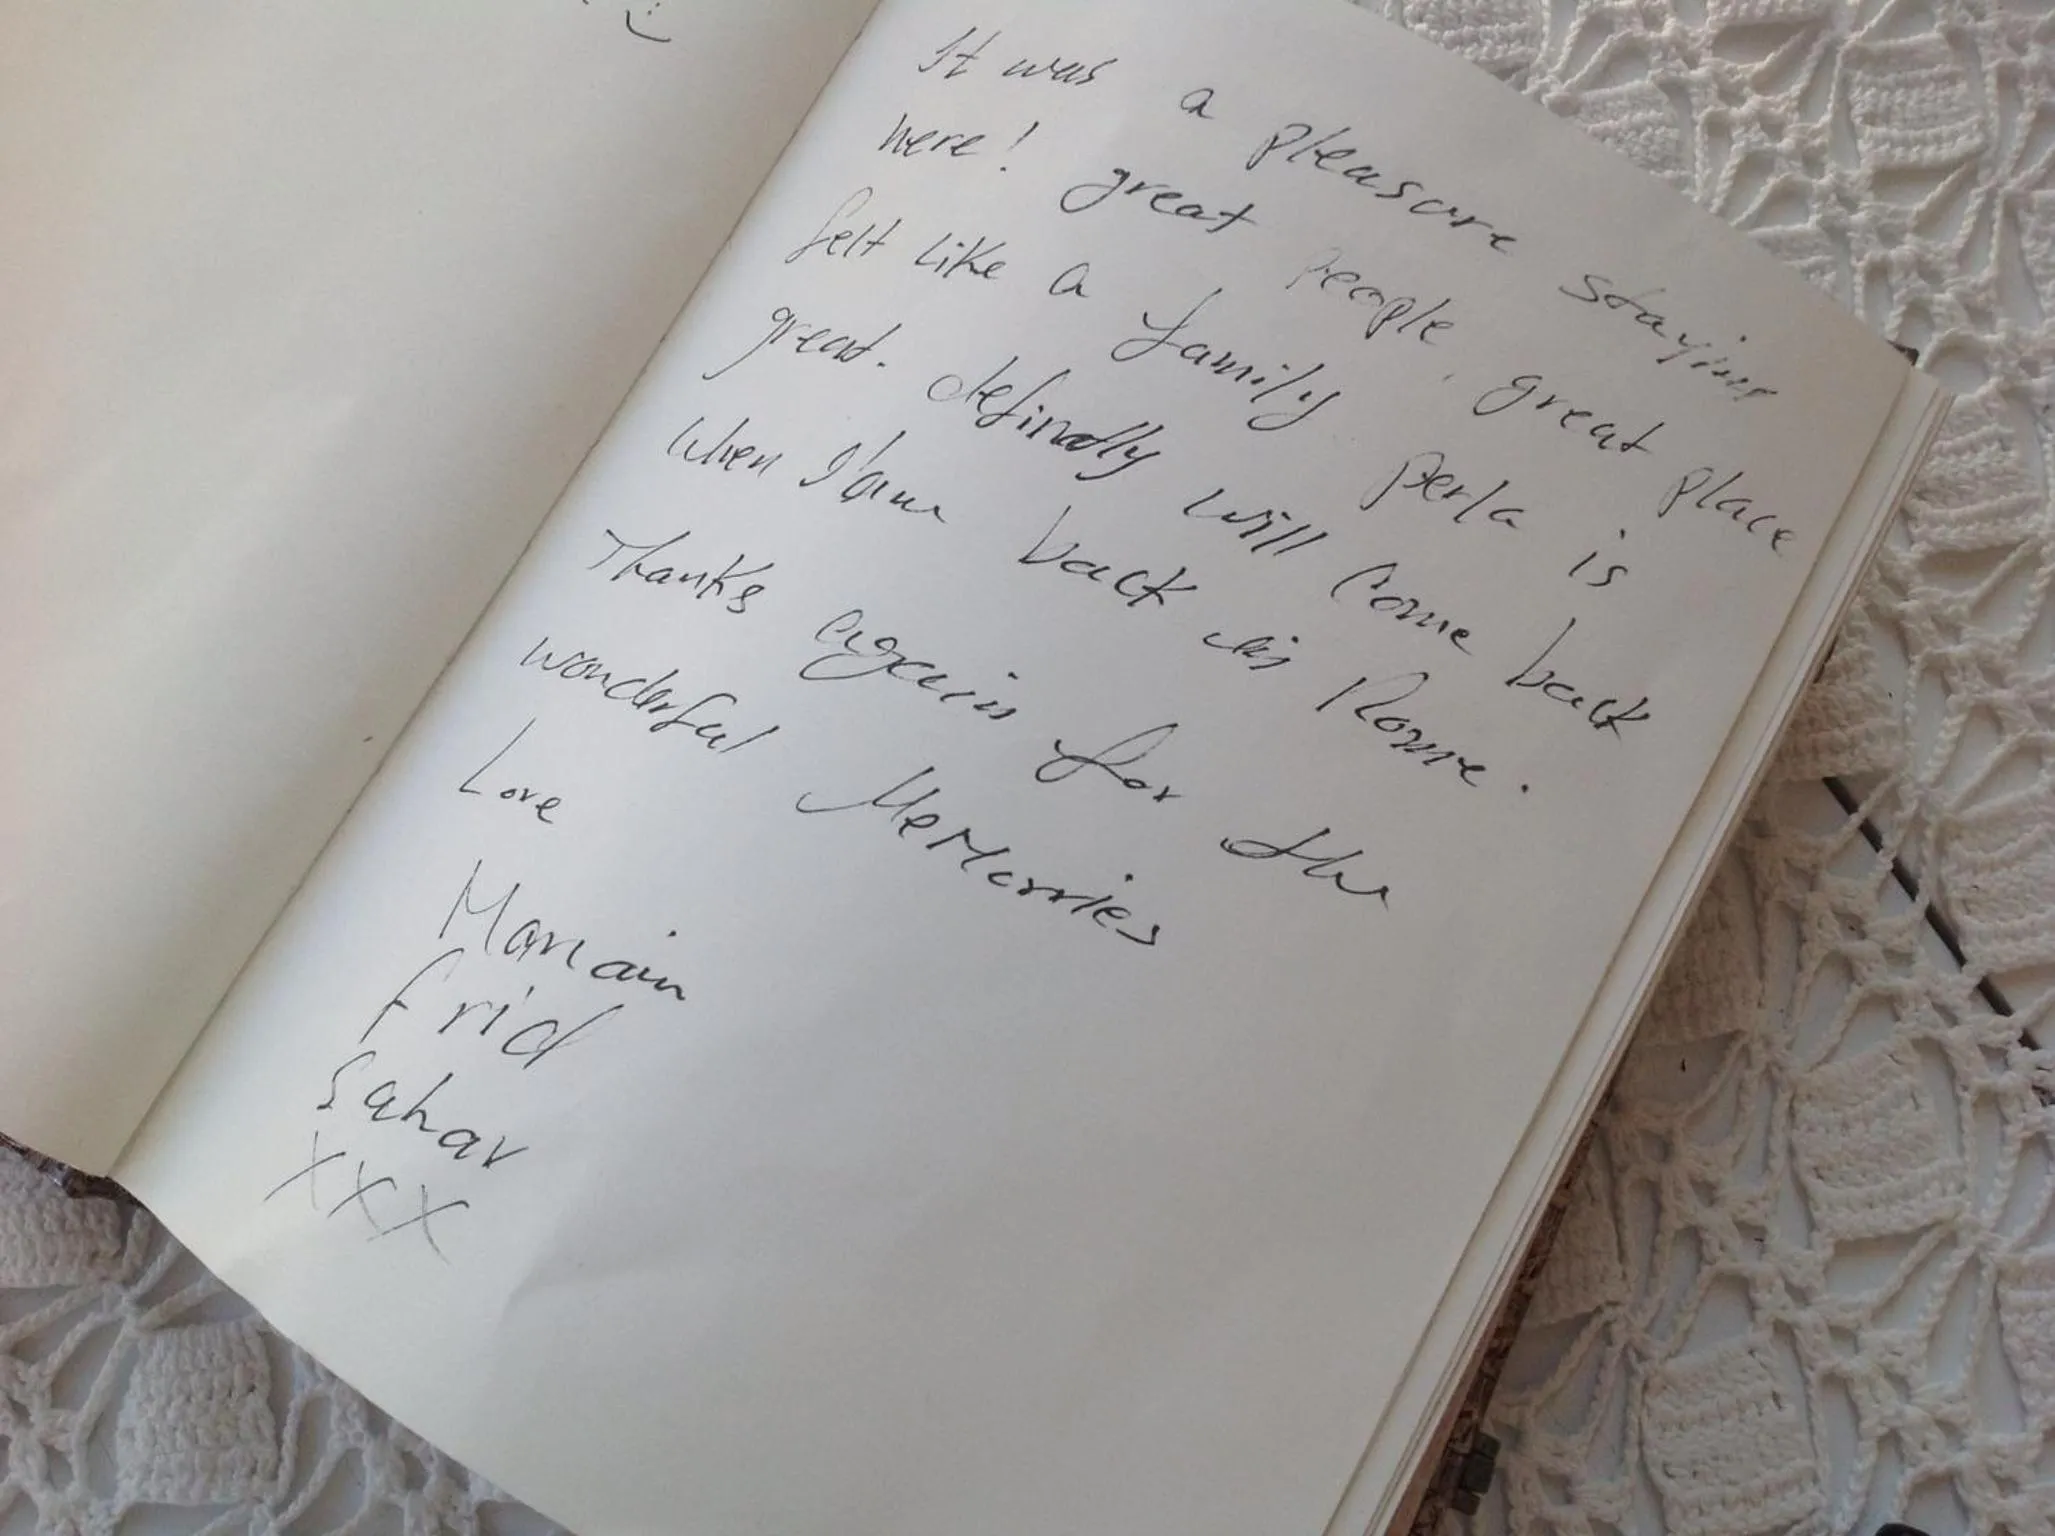 It was a pleasure staying
here! great people, great place
felt like a family perla is
great. definatly will come back
when I'am back in Rome.
Thanks again for the
wonderful MeMorries
Love
Frid
Sahar
XXX